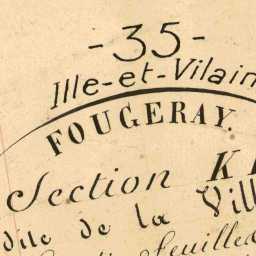 - 35 -
Ille-et-Vilain
FOUGERAY.
Section K
dite de la Vill
Feuilles